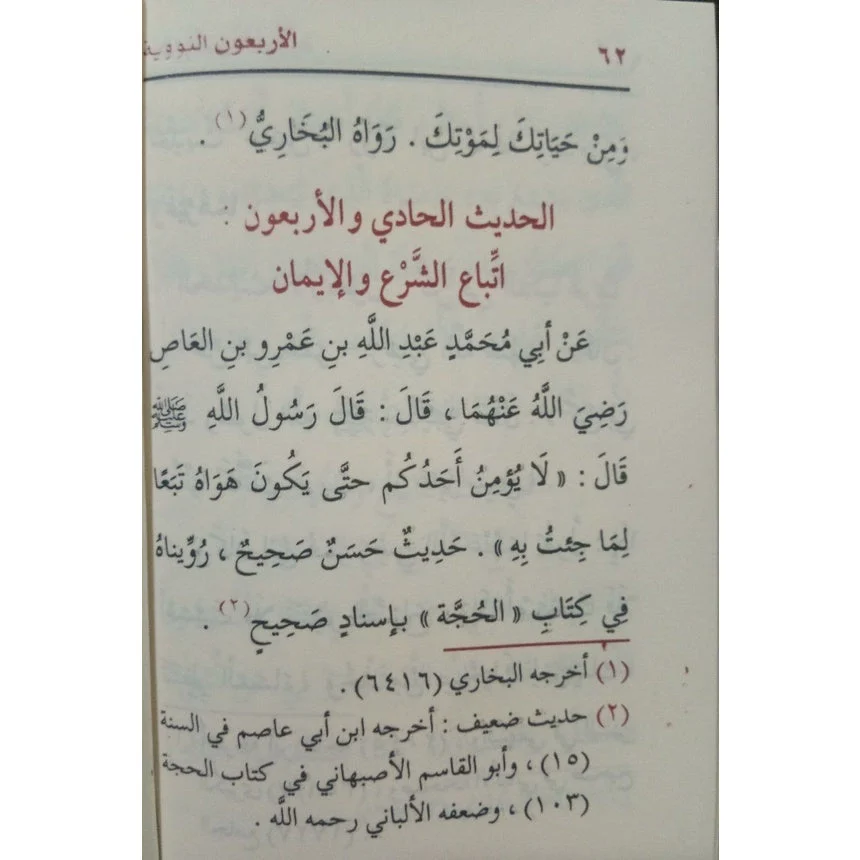 ٦٢ الأربعون النووية
وَمِنْ حَيَاتِكَ لِمَوْتِكَ . رَوَاهُ البُخَارِيُّ (١) .
الحديث الحادي والأربعون :
اتِّباع الشَّرْع والإيمان
عَنْ أبِي مُحَمَّدٍ عَبْدِ اللَّهِ بنِ عَمْرِو بنِ العَاصِ
رَضِيَ اللَّهُ عَنْهُمَا ، قَالَ : قَالَ رَسُولُ اللَّهِ ﷺ
قَالَ : « لَا يُؤمِنُ أَحَدُكُم حتَّى يَكُونَ هَوَاهُ تَبَعًا
لِمَا جِئتُ بِهِ » . حَدِيثٌ حَسَنٌ صَحِيحٌ ، رُوِّيناهُ
فِي كِتَابِ « الحُجَّة » بإسنادٍ صَحِيحٍ (٢) .
(١) أخرجه البخاري (٦٤١٦) .
(٢) حديث ضعيف : أخرجه ابن أبي عاصم في السنة
(١٥) ، وأبو القاسم الأصبهاني في كتاب الحجة
(١٠٣) ، وضعفه الألباني رحمه اللَّه .